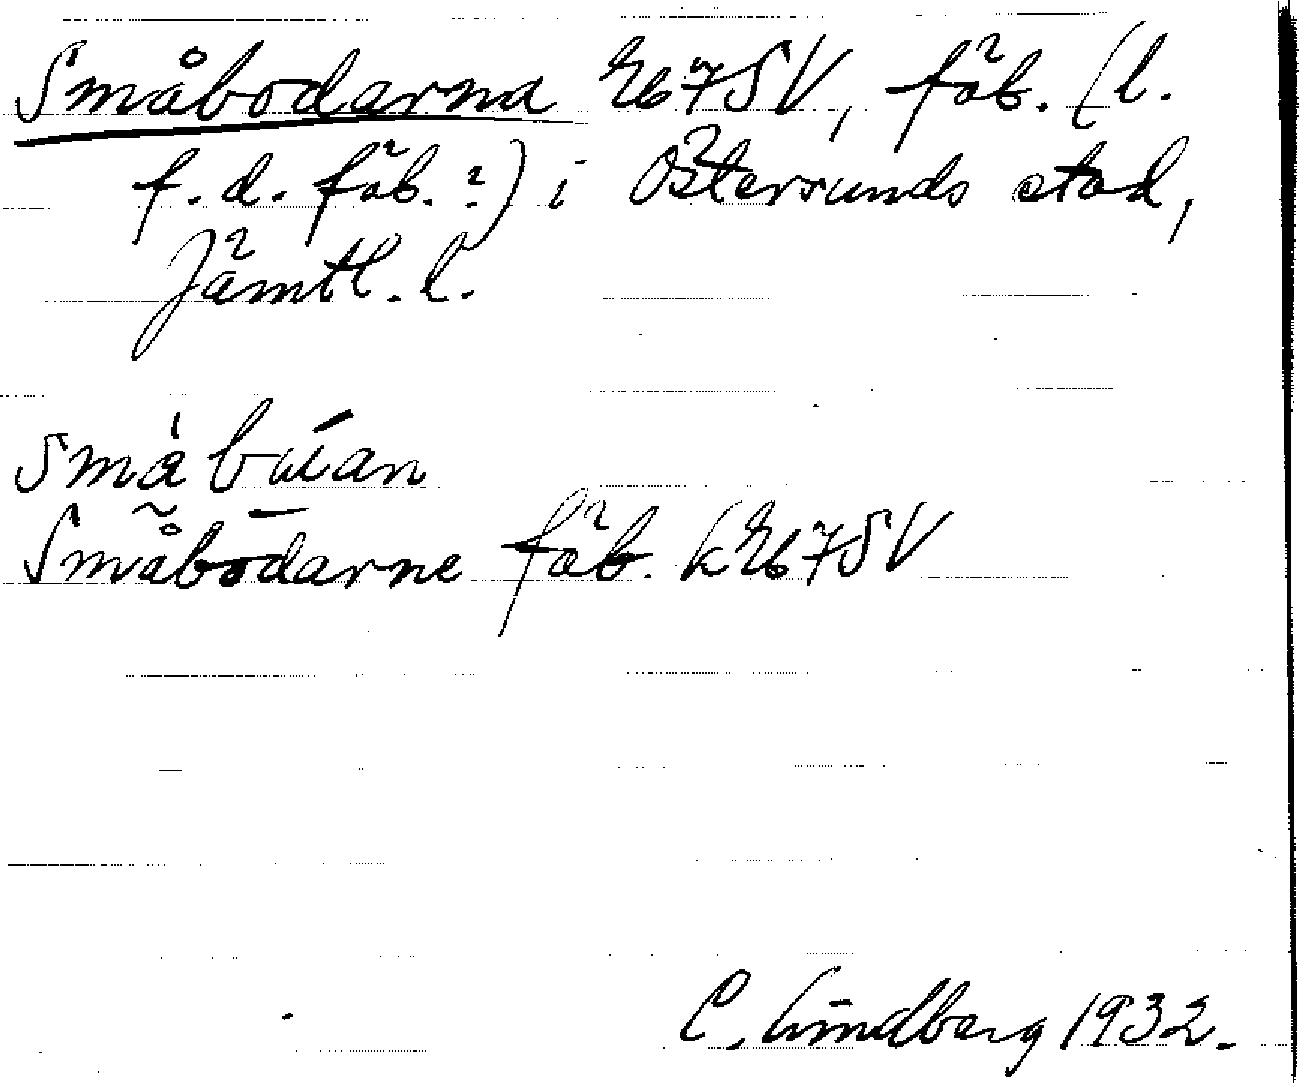 Småbodarna Ek67SV, fäb. (l.
f.d. fäb.?) i Östersunds stad,
Jämtl. l.
Små búan
Småbōdarne fäb. kEk67SV
C. Lindberg 1932.